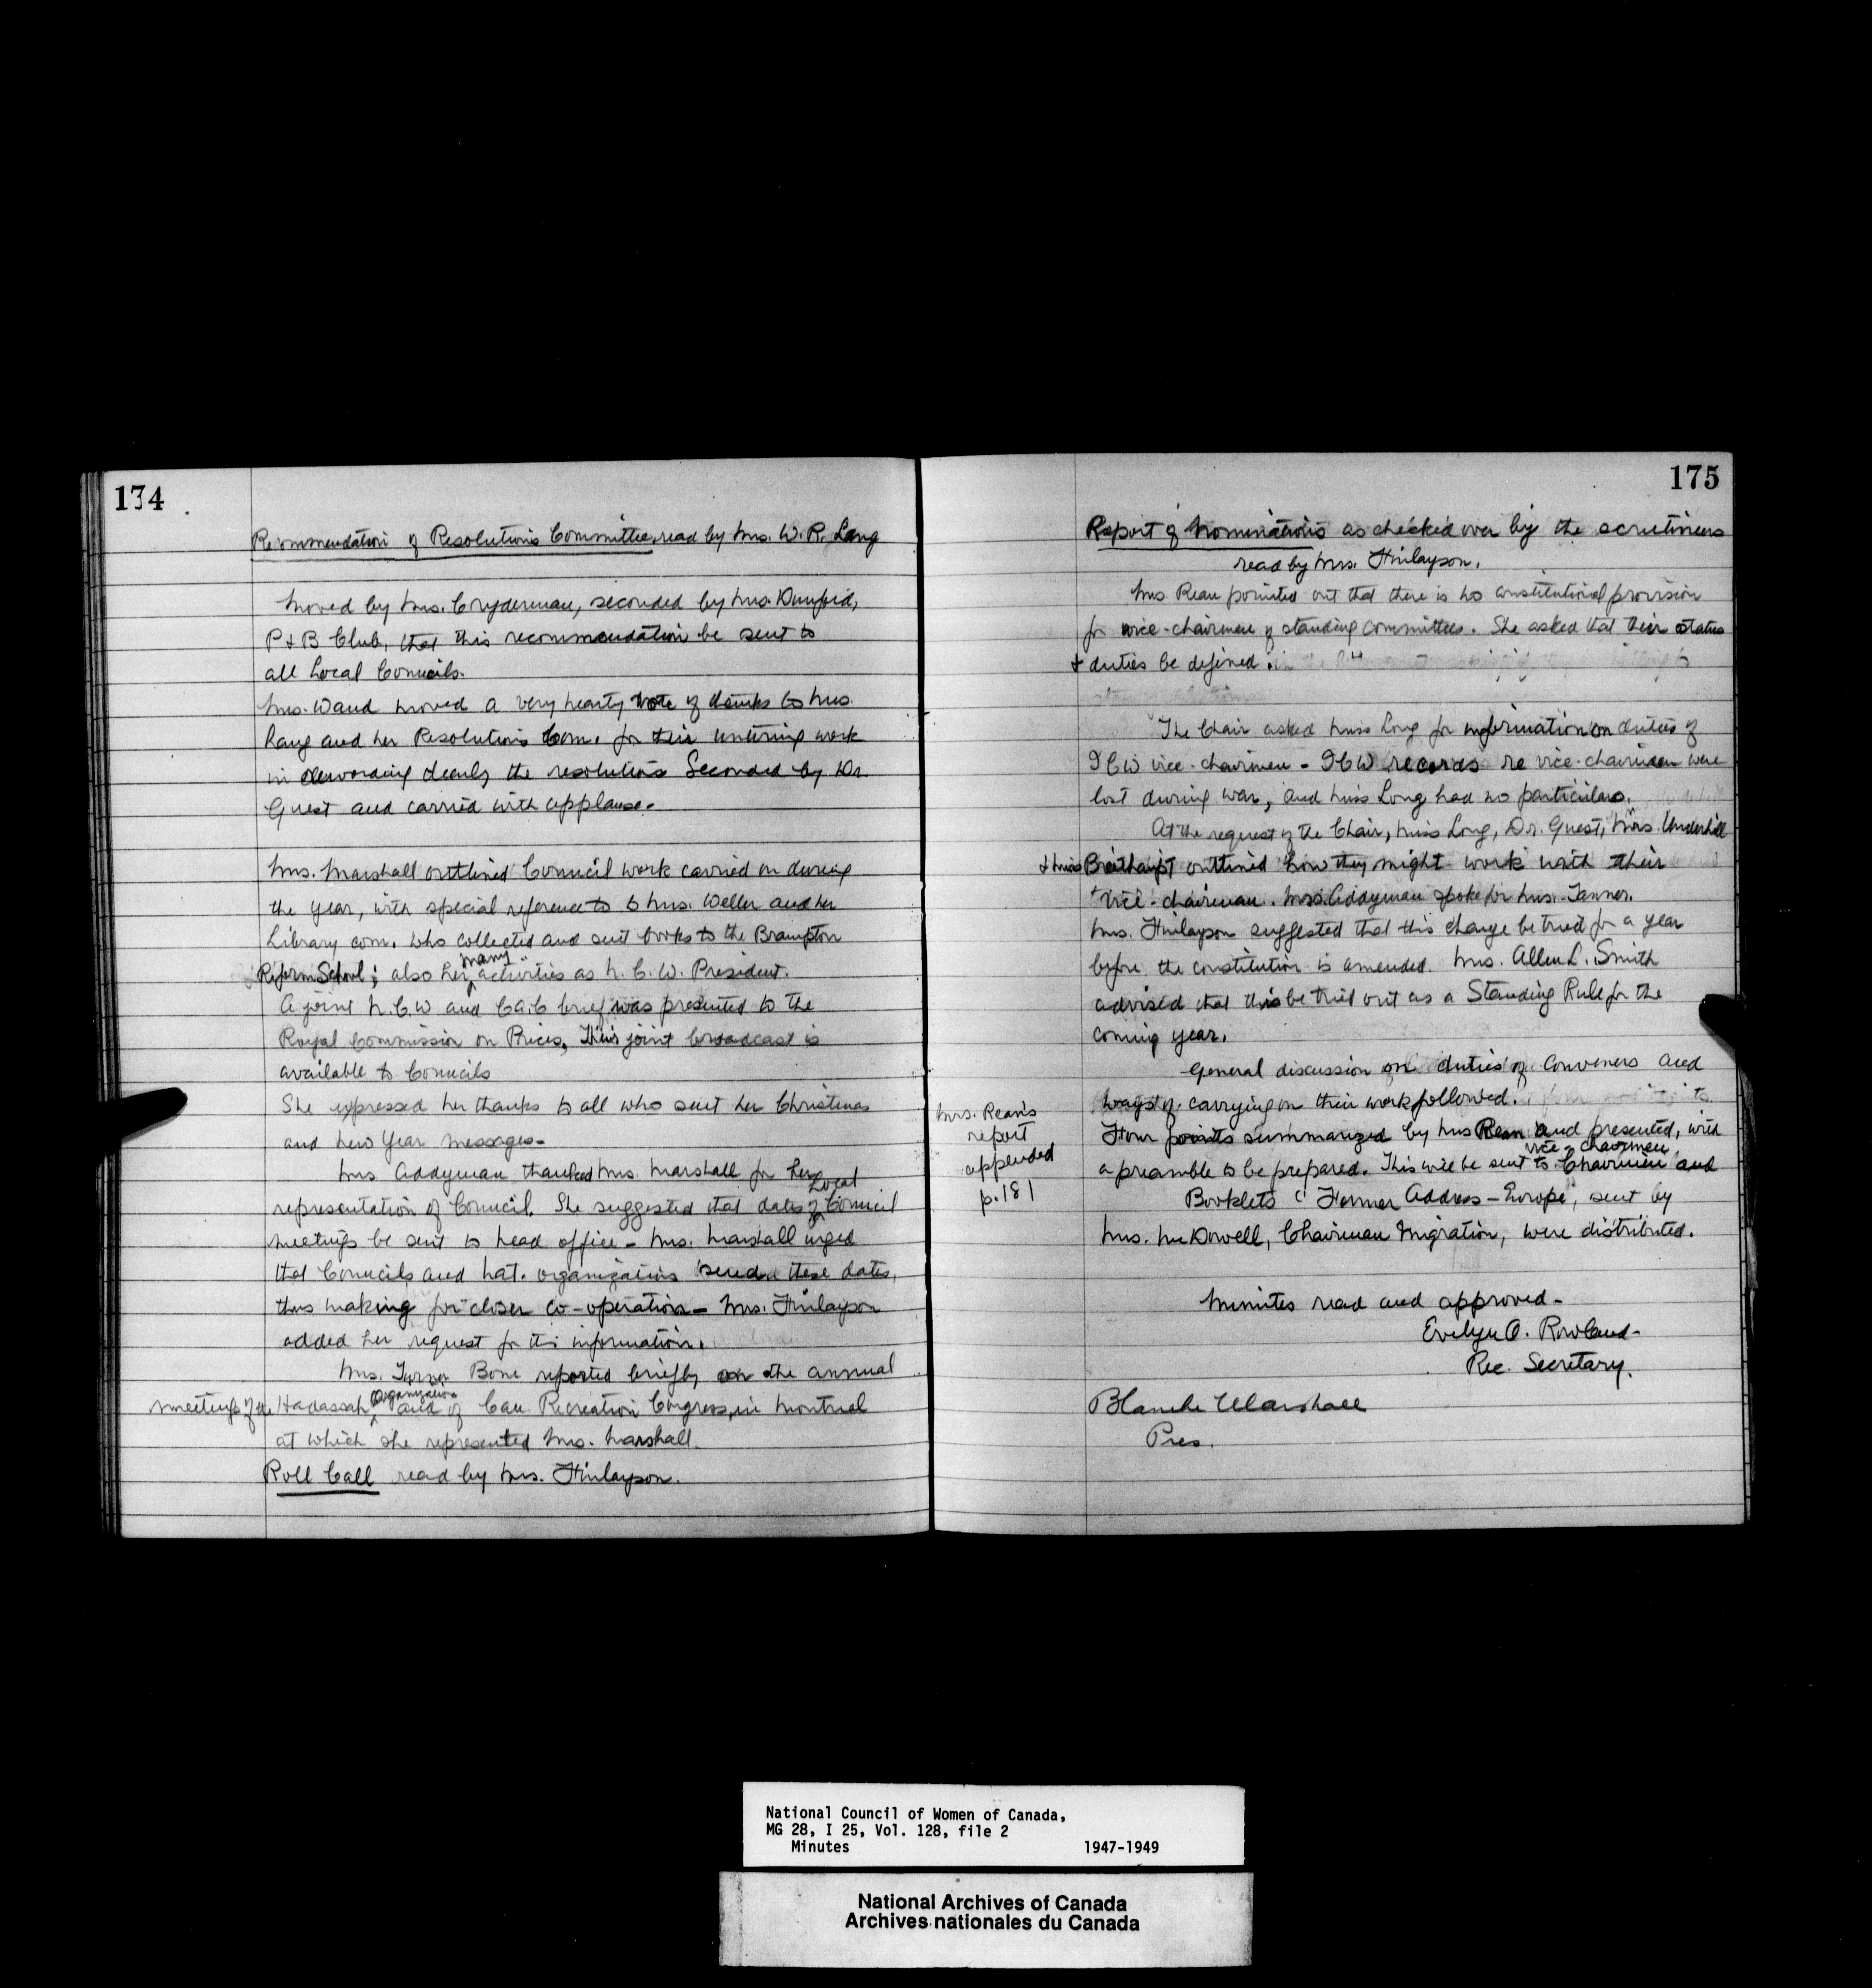 174
Recommendation of Resolutions Committee, read by Mrs. W. R. Lang
Moved by Mrs. Cryderman, seconded by Mrs. Dunford,
P & B Club, that this recommendation be sent to
all Local Councils.
Mrs. Wand moved a very hearty vote of thanks to Mrs.
Lang and her Resolutions Com. for their untiring work
in wording clearly the resolutions Seconded by Dr.
Guest and carried with applause.
Mrs. Marshall outlined Council work carried on during
the year, with special reference to Mrs. Weller and her
Library com. who collected and sent books to the Brampton
Reform School; also her many activities as N. C. W. President.
A joint N.C.W and C.A.C brief was presented to the
Royal Commission on Prices, Their joint broadcast is
available to Councils
She expressed her thanks to all who sent her Christmas
and New Year messages-
Mrs Addyman thanked Mrs. Marshall for her
representation of Council. She suggested that dates of Local Council
meetings be sent to head office - Mrs. Marshall urged
that Councils and Nat. organizations send these dates,
thus making for closer co-operation - Mrs. Finlayson
added her request for this information.
Mrs. Turner Bone reported briefly on the annual
meetings of the Hadassah Organization and of Can. Recreation Congress, in Montreal
at which she represented Mrs. Marshall.
Roll Call read by Mrs. Finlayson.
175
Report of Nominations as checked over by the scrutineers
read by Mrs. Finlayson.
Mrs Rean pointed out that there is no constitutional provision
for vice-chairmen of standing committees. She asked that their status
& duties be defined.
The Chair asked Miss Long for information on duties of
ICW vice-chairmen - ICW records re vice-chairmen were
lost during war, and Miss Long had no particulars.
At the request of the Chair, Miss Long, Dr. Guest, Mrs. Underhill
& Miss Breithaupt outlined how they might work with their
vice-chairman. Mrs Addyman spoke for Mrs. Tanner.
Mrs. Finlayson suggested that this change be tried for a year
before the constitution is amended. Mrs. Allen L. Smith
advised that this be tried out as a Standing Rule for the
coming year.
General discussion on duties of Conveners and
ways of carrying on their work followed.
Mrs. Rean's
report
appended
p. 181
Four points summarized by Mrs Rean and presented, with
a preamble to be prepared. This will be sent to Chairmen and vice-chairmen
Booklets "Former Address - Europe", sent by
Mrs. McDowell, Chairman Migration, were distributed.
Minutes read and approved -
Evelyn O. Rowland-
Rec. Secretary.
Blanche Marshall
Pres.
National Council of Women of Canada,
MG 28, I 25, Vol. 128, file 2
Minutes 1947-1949
National Archives of Canada
Archives nationales du Canada